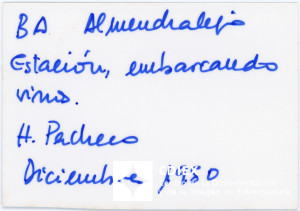 BA Almendralejo
Estación, embarcando
vino.
H. Pacheco
Diciembre 1950